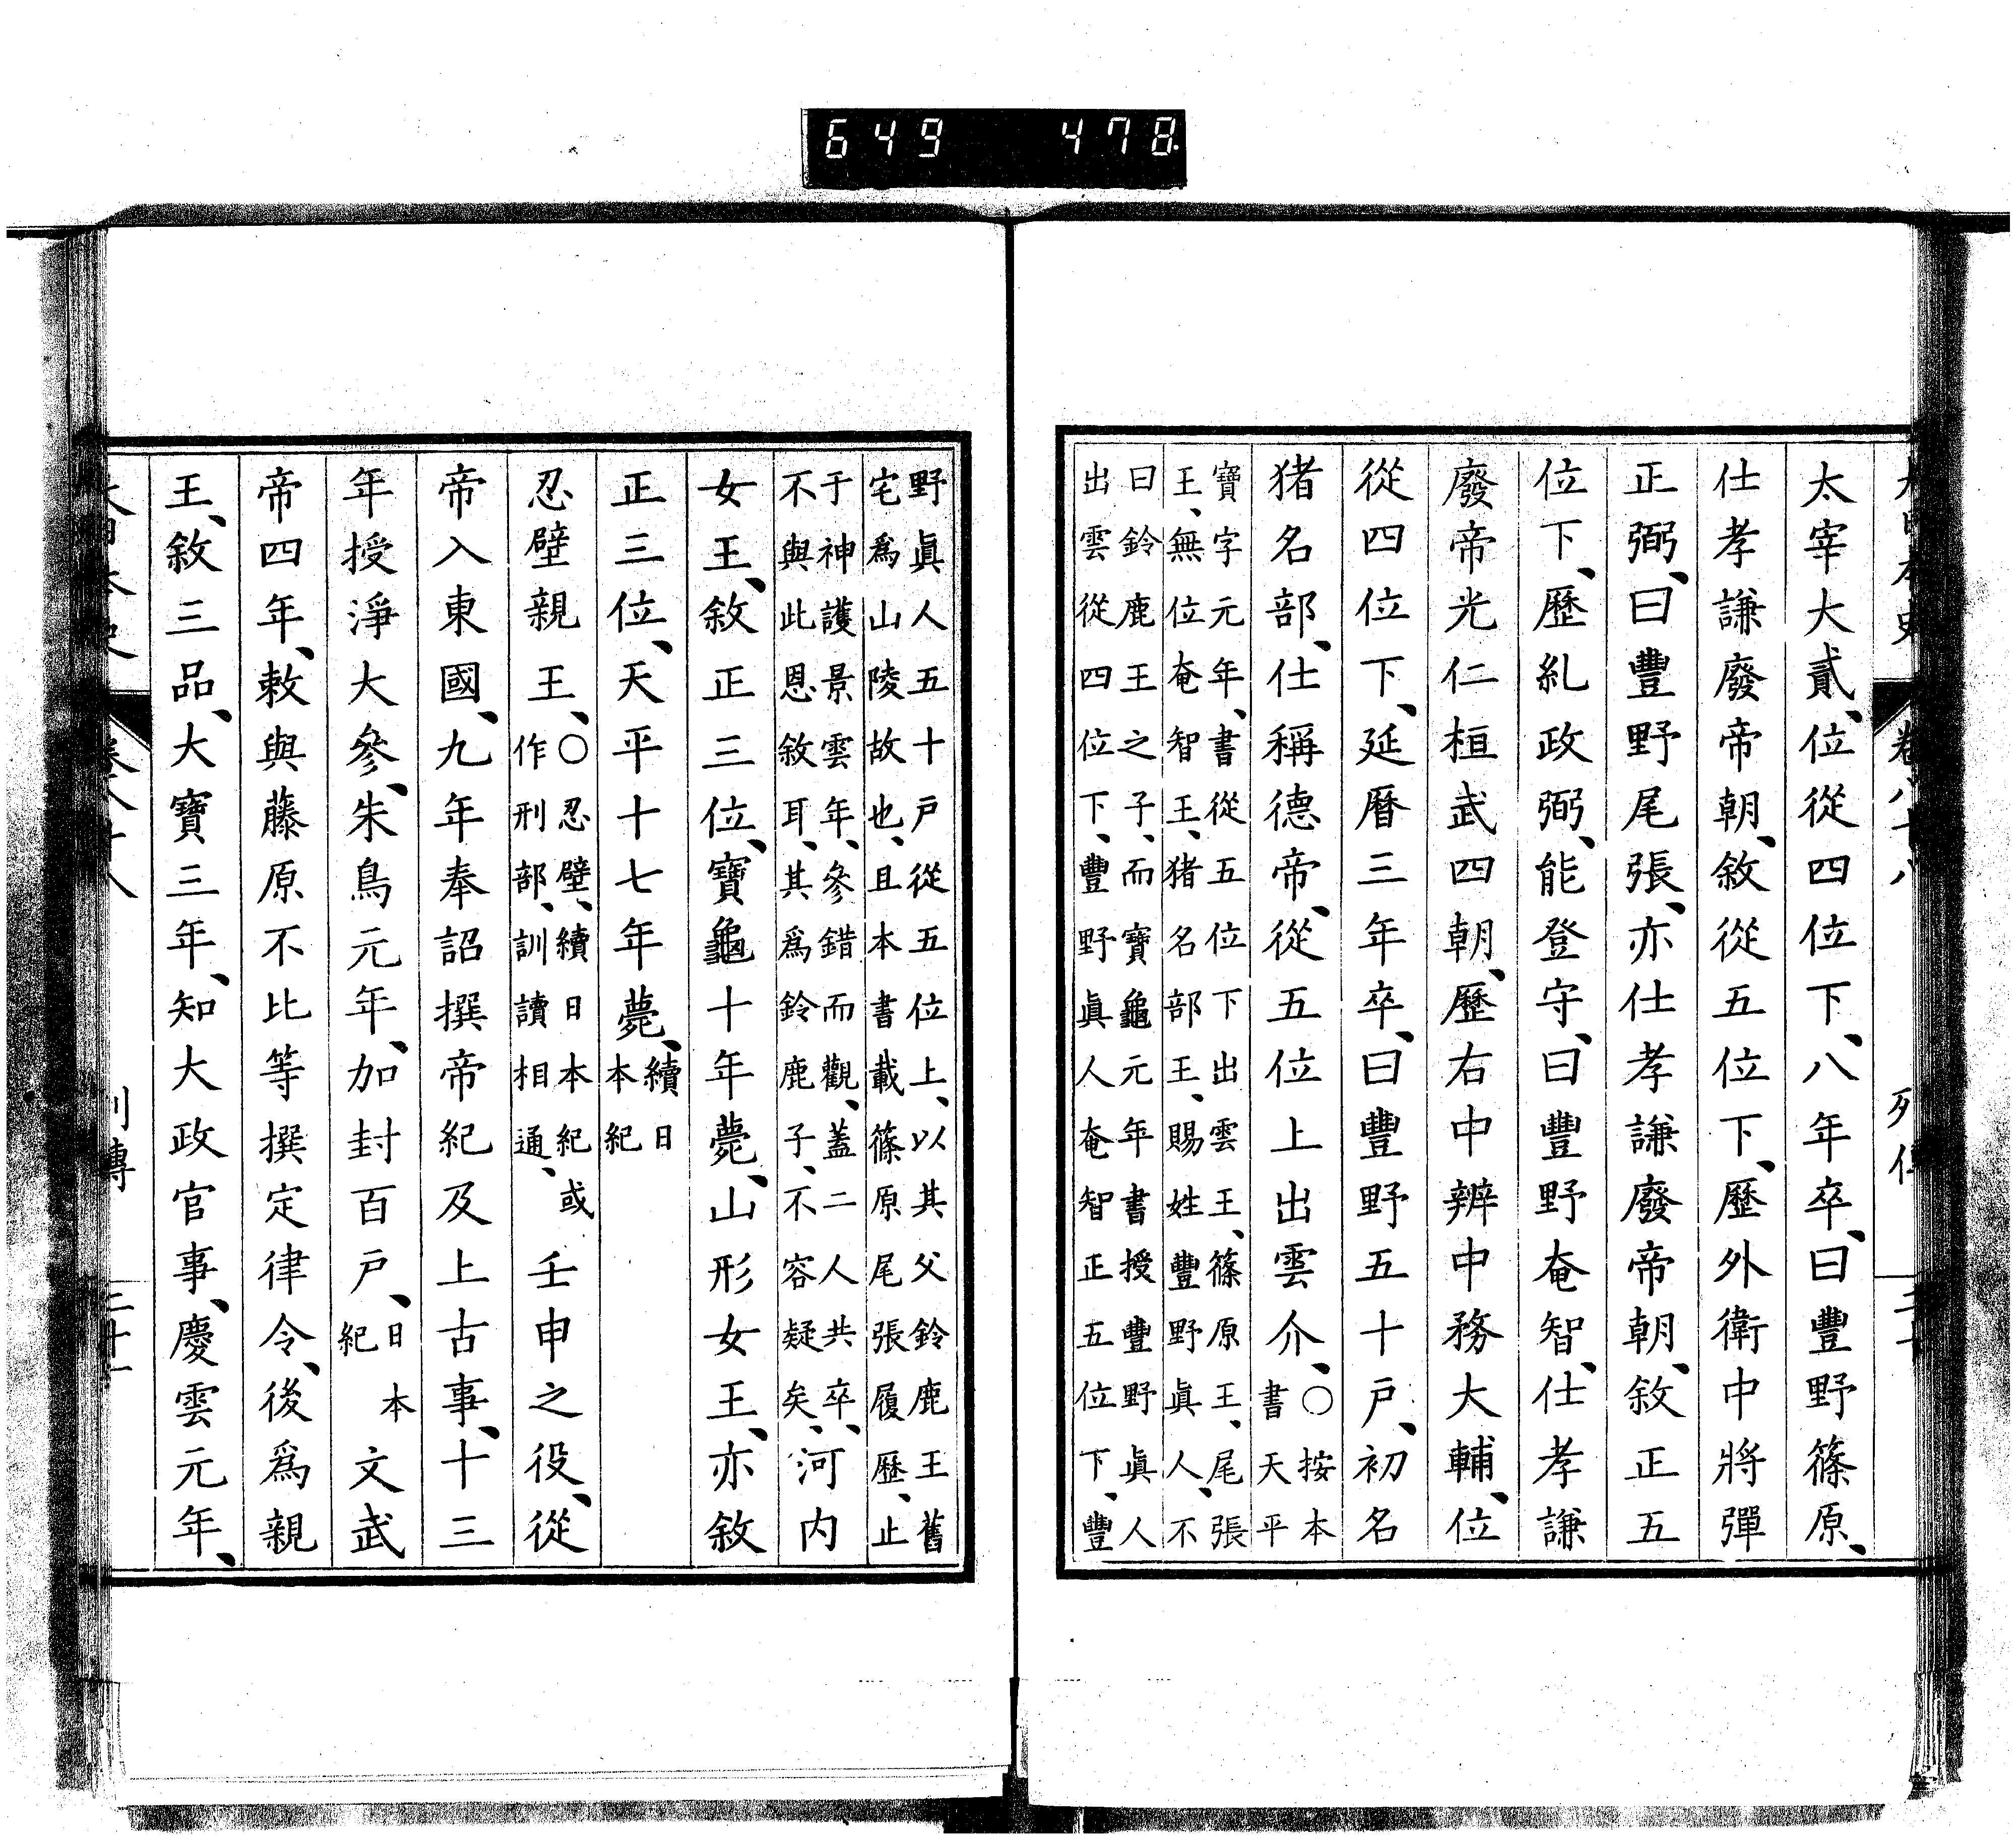 649 478.
大日本史 卷八十八 列傳 三十
太宰大貳、位從四位下、八年卒、曰豐野篠原、
仕孝謙廢帝朝、敘從五位下、歷外衛中將彈
正弼、曰豐野尾張、亦仕孝謙廢帝朝、敘正五
位下、歷糺政弼、能登守、曰豐野奄智、仕孝謙
廢帝光仁桓武四朝、歷右中辨中務大輔、位
從四位下、延曆三年卒、曰豐野五十戶、初名
猪名部、仕稱德帝、從五位上出雲介、〇按本
書天平
寶字元年、書從五位下出雲王、篠原王、尾張
王、無位奄智王、猪名部王、賜姓豐野眞人、不
曰鈴鹿王之子、而寶龜元年書授豐野眞人
出雲從四位下、豐野眞人奄智正五位下、豐
野眞人五十戶從五位上、以其父鈴鹿王舊
宅爲山陵故也、且本書載篠原尾張履歷、止
于神護景雲年、參錯而觀、蓋二人共卒、
不與此恩敘耳、其爲鈴鹿子、不容疑矣、河内
女王、敘正三位、寶龜十年薨、山形女王、亦敘
正三位、天平十七年薨、續日
本紀
忍壁親王、〇忍壁、續日本紀或
作刑部、訓讀相通、壬申之役、從
帝入東國、九年奉詔撰帝紀及上古事、十三
年授淨大參、朱鳥元年、加封百戶、日本
紀文武
帝四年、敕與藤原不比等撰定律令、後爲親
王、敘三品、大寶三年、知大政官事、慶雲元年、
大日本史 卷八十八 列傳 三十一